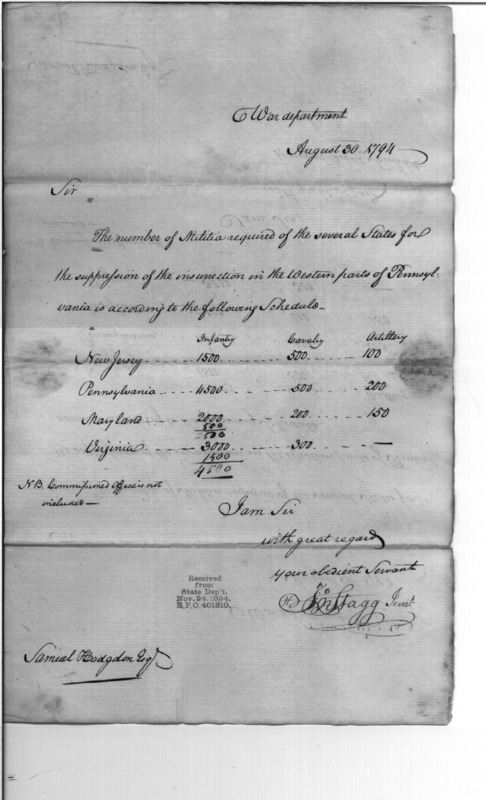 War department
August 30 1794
Sir
The number of Militia required of the several States for
the suppression of the insurrection in the Western parts of Pennsyl-
vania is according to the following Schedule
Infantry Cavalry Artillery
New Jersey 1500 500 100
Pennsylvania 4500 500 200
Maryland 2000 200 150
500
500
Virginia 3000 300 —
1500
4500
N.B. Commissioned Officers not
included —
I am Sir
with great regard
your obedient Servant
Jno Stagg Junr
Received
from
State Dep't.
Nov. 24. 1894,
R.P.O. 401310.
Samuel Hodgdon Esqr